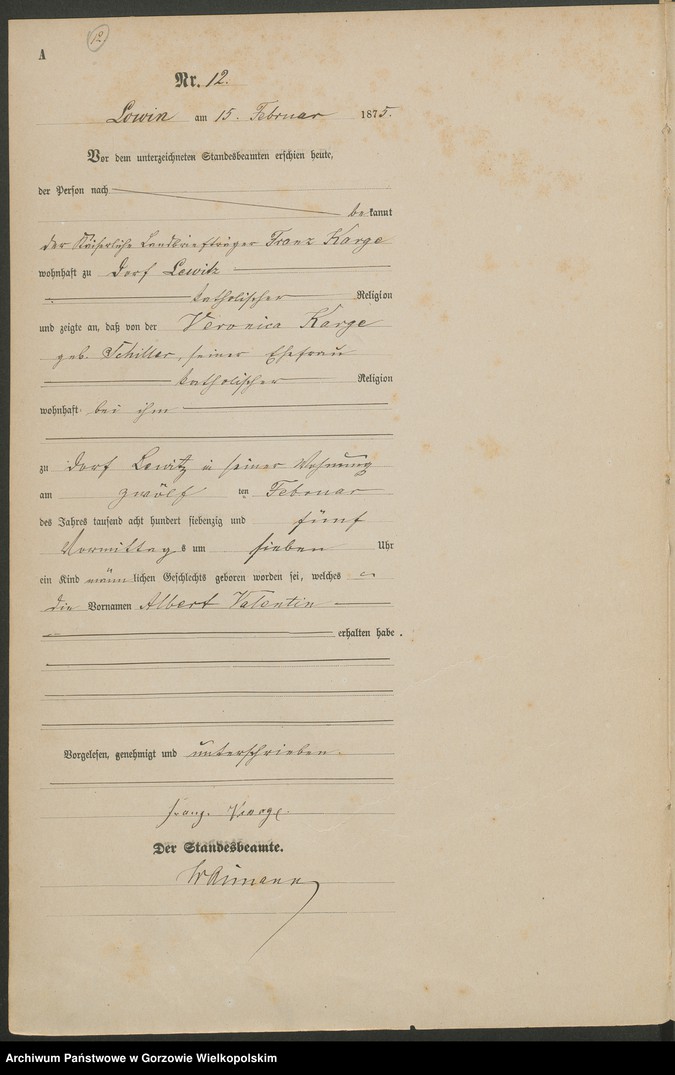 12.
A
Nr. 12.
Lowin am 15. Februar 1875.
Vor dem unterzeichneten Standesbeamten erschien heute,
der Person nach
bekannt
der Kaiserliche Landbriefträger Franz Karge
wohnhaft zu Dorf Lewitz
katholischer Religion
und zeigte an, daß von der Veronica Karge
geb. Schiller, seiner Ehefrau
katholischer Religion
wohnhaft bei ihm
zu Dorf Lewitz in seiner Wohnung
am zwölf ten Februar
des Jahres tausend acht hundert siebenzig und fünf
Vormittags um sieben Uhr
ein Kind männlichen Geschlechts geboren worden sei, welches
die Vornamen Albert Valentin
erhalten habe.
Vorgelesen, genehmigt und unterschrieben.
Franz Karge.
Der Standesbeamte.
Archiwum Państwowe w Gorzowie Wielkopolskim